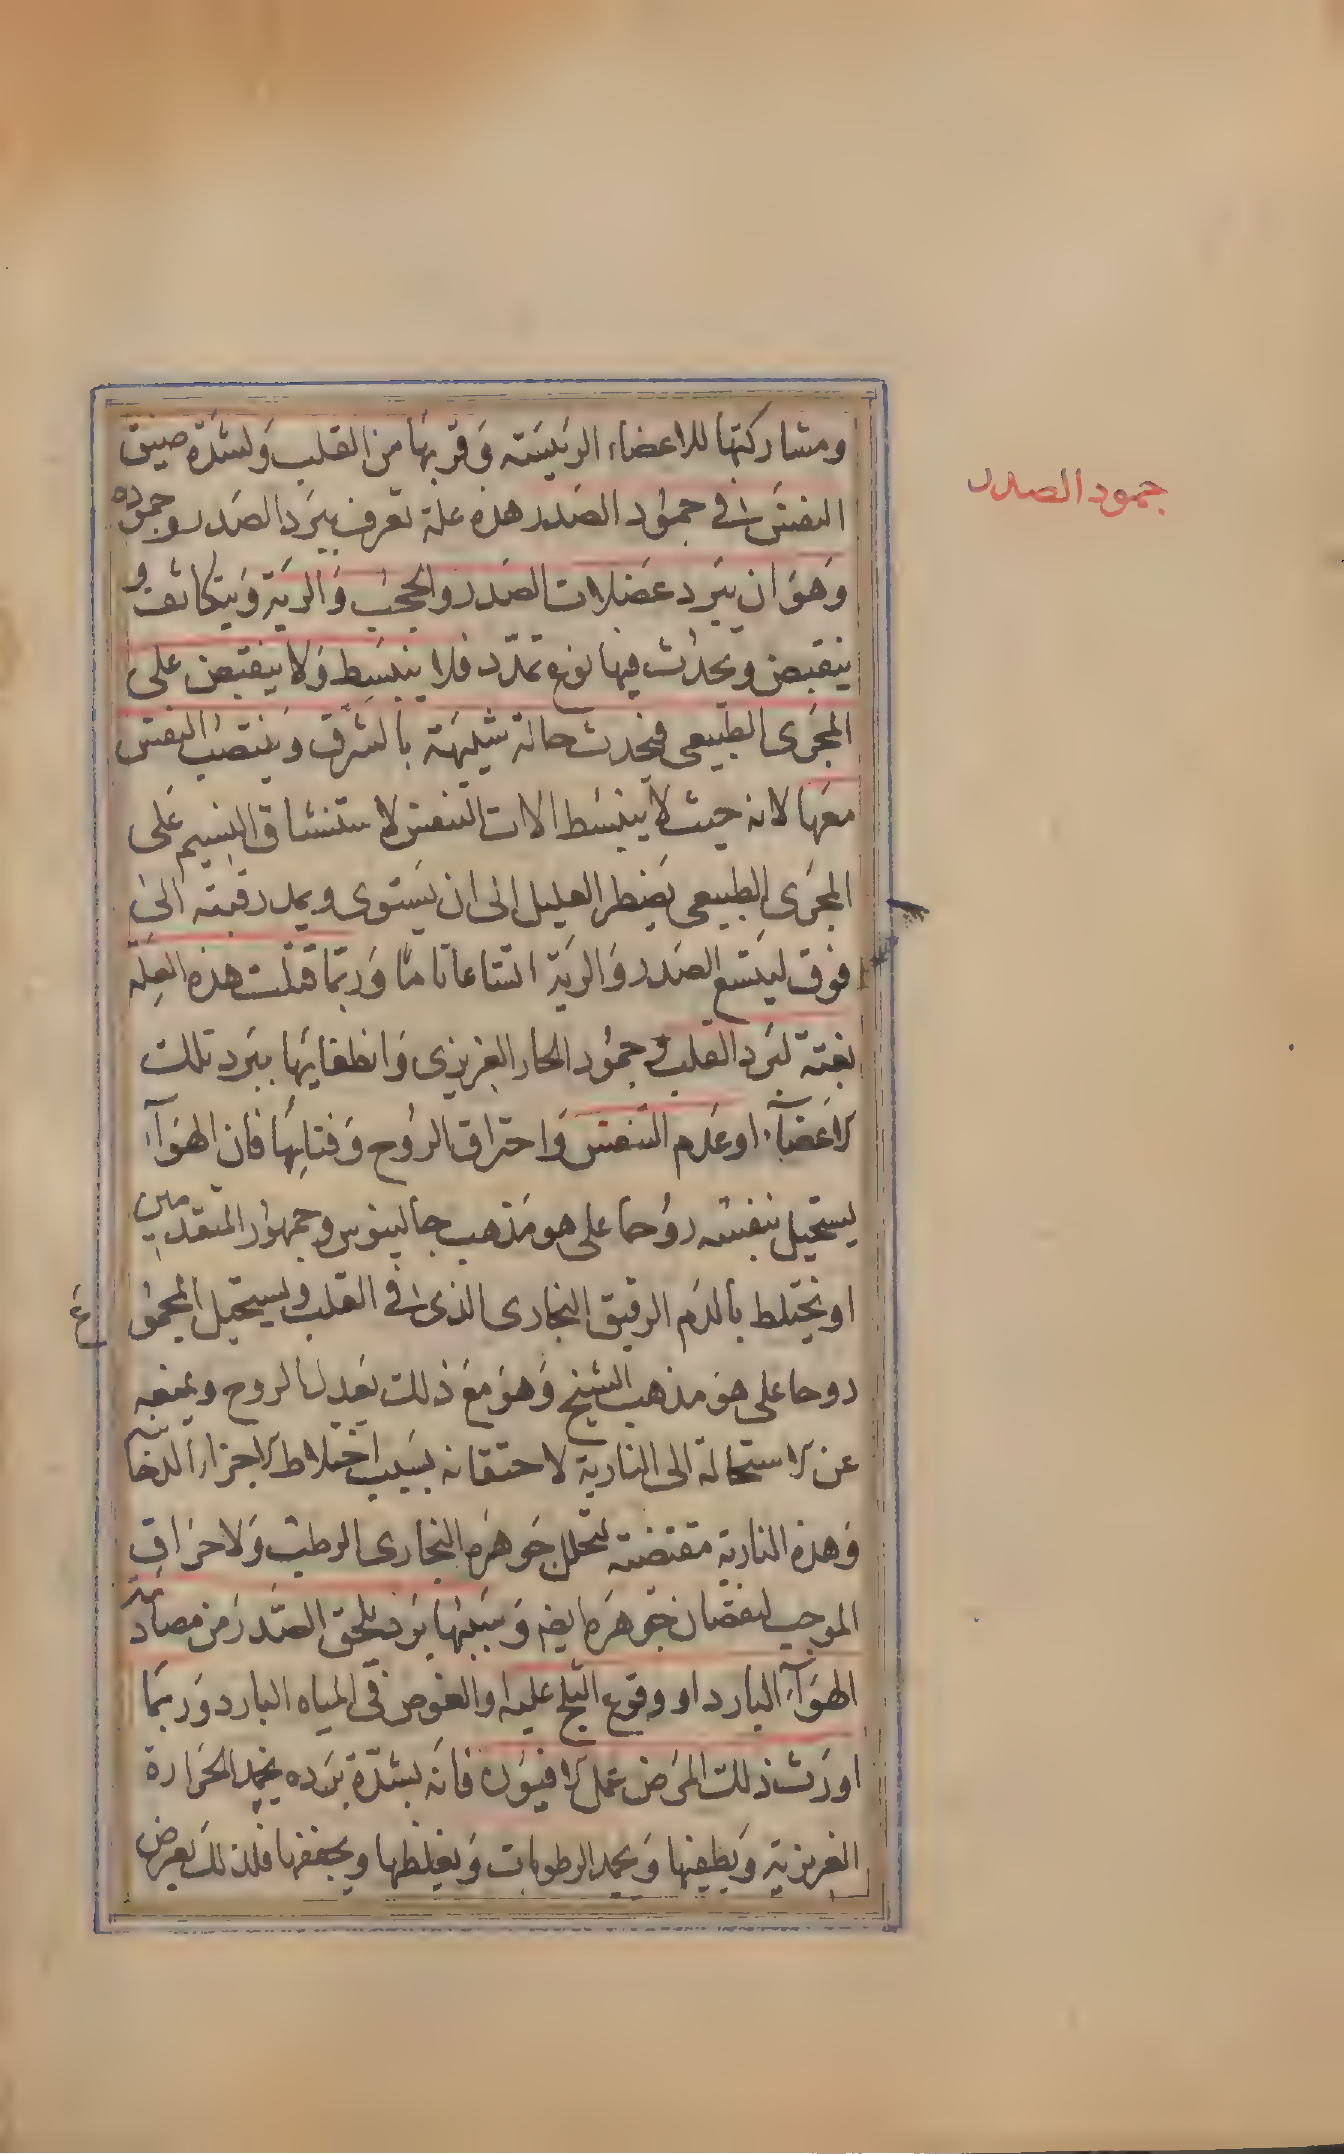 جمود الصدر
ومشاركتها للاعضاء الرئيسته وقربها من القلب ولشدة ضيق
النفس في جمود الصدر هذه علة تعرف ببرد الصدر وجموده
وهو ان يبرد عضلات الصدر والحجب والرية ويتكاثف و
ينقبض ويحدث فيها نوع تمدد فلا ينبسط ولا ينقبض على
المجرى الطبيعى فيحدث حالة شبيهة بالشرق وينتصب النفس
معها لانه حيث لا ينبسط الات التنفس لاستنشاق النسيم على
المجرى الطبيعى يضطر العليل الى ان يستوى ويمد رقبته الى
فوق ليتسع الصدر والرية اتساعا تاما وربما قتلت هذه العلة
بغتة لبرد القلب و جمود الحار الغريزى وانطفايها ببرد تلك
الاعضآء او عدم التنفس واحتراق الروح وفنايها فان الهوآء
يستحيل بنفسه روحا على هو مذهب جالينوس وجمهور المتقدمين
او يختلط بالدم الرقيق البخارى الذى في القلب ويستحيل المجموع
روحا على هو مذهب الشيخ وهو مع ذلك يعدل الروح ويمنعه
عن الاستحالة الى النارية لاحتقانه بسبب اختلاط الاجزاء الدخانية
وهذه النارية مقتضته لتحلل جوهره البخارى الرطب ولاحراق
الموجب لنقصان جوهره ايضه وسببها برد يلحق الصدر من مصادمة
الهوآء البارد او وقوع الثلج عليه او الغوص فى المياه البارد وربما
اورث ذلك المرض عمل الافيون فانه بشدة برده يجمد الحرارة
الغريزية ويطفيها ويجمد الرطوبات ويغلظها ويجففها فلذلك يعرض